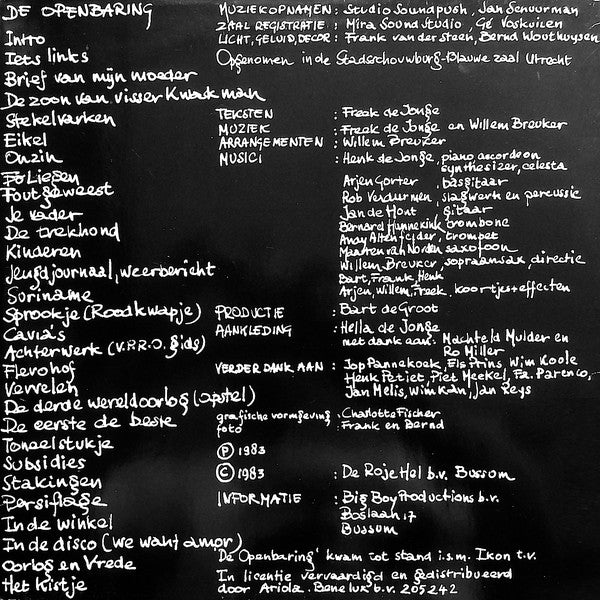 DE OPENBARING
Intro
Iets links
Brief van mijn moeder
De zoon van visser Kwakman
Stekelvarken
Eikel
Onzin
Po Liepen
Fout geweest
Je vader
De trekhond
Kinderen
Jeugdjournaal, weerbericht
Suriname
Sprookje (Roodkwapje)
Cavia's
Achterwerk (V.P.R.O. gids)
Flevohof
Vervelen
De derde wereldoorlog (opstel)
De eerste de beste
Toneelstukje
Subsidies
Stakingen
Persiflage
In de winkel
In de disco (we want amor)
Oorlog en Vrede
Het kistje
MUZIEKOPNAMEN: Studio Soundpush, Jan Schuurman
ZAAL REGISTRATIE: Mira Sound Studio, Gé Voskuilen
LICHT, GELUID, DECOR: Frank van der Steen, Bernd Wouthuysen
Opgenomen in de Stadsschouwburg-Blauwe zaal Utrecht
TEKSTEN : Freek de Jonge
MUZIEK : Freek de Jonge en Willem Breuker
ARRANGEMENTEN : Willem Breuker
MUSICI : Henk de Jonge, piano, accordeon
synthesizer, celesta
Arjen Gorter, basgitaar
Rob Verdurmen, slagwerk en percussie
Jan de Hont, gitaar
Bernard Hunnekink, trombone
Andy Altenfelder, trompet
Maarten van Norden, saxofoon
Willem Breuker, sopraansax, directie
Bart, Frank, Henk
Arjen, Willem, Freek, koortjes + effecten
PRODUCTIE : Bart de Groot
AANKLEDING : Hella de Jonge
met dank aan: Machteld Mulder en
Ro Miller
VERDER DANK AAN : Jop Pannekoek, Els Prins, Wim Koole
Henk Petiet, Piet Meekel, Fa. Parenco,
Jan Melis, Wim Kan, Jan Reys
grafische vormgeving : Charlotte Fischer
foto : Frank en Bernd
Ⓟ 1983
© 1983 : De Roje Hel b.v. Bussum
INFORMATIE : Big Boy Productions b.v.
Boslaan 17
Bussum
'De Openbaring' kwam tot stand i.s.m. Ikon t.v.
In licentie vervaardigd en gedistribueerd
door Ariola Benelux b.v. 205242